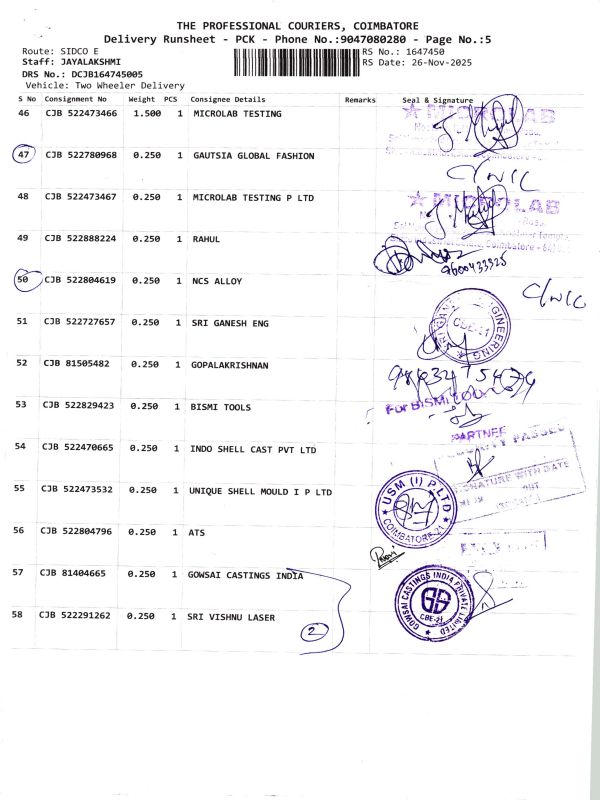 THE PROFESSIONAL COURIERS, COIMBATORE
Delivery Runsheet - PCK - Phone No.:9047080280 - Page No.:5
Route: SIDCO E
RS No.: 1647450
Staff: JAYALAKSHMI
RS Date: 26-Nov-2025
DRS No.: DCJB164745005
Vehicle: Two Wheeler Delivery
S No Consignment No Weight PCS Consignee Details Remarks Seal & Signature
46 CJB 522473466 1.500 1 MICROLAB TESTING
MICROLAB
47 CJB 522780968 0.250 1 GAUTSIA GLOBAL FASHION
C/NIC
48 CJB 522473467 0.250 1 MICROLAB TESTING P LTD
MICROLAB
49 CJB 522888224 0.250 1 RAHUL
9600433325
50 CJB 522804619 0.250 1 NCS ALLOY
C/NIC
51 CJB 522727657 0.250 1 SRI GANESH ENG
SRI GANESH ENGINEERING
CBE-21
52 CJB 81505482 0.250 1 GOPALAKRISHNAN
53 CJB 522829423 0.250 1 BISMI TOOLS
For BISMI TOOLS
PARTNER
54 CJB 522470665 0.250 1 INDO SHELL CAST PVT LTD
SECURITY PASSED
SIGNATURE WITH DATE
55 CJB 522473532 0.250 1 UNIQUE SHELL MOULD I P LTD
USM (I) P LTD
COIMBATORE-21
56 CJB 522804796 0.250 1 ATS
57 CJB 81404665 0.250 1 GOWSAI CASTINGS INDIA
GOWSAI CASTINGS INDIA PRIVATE LIMITED
CBE-21
58 CJB 522291262 0.250 1 SRI VISHNU LASER
2